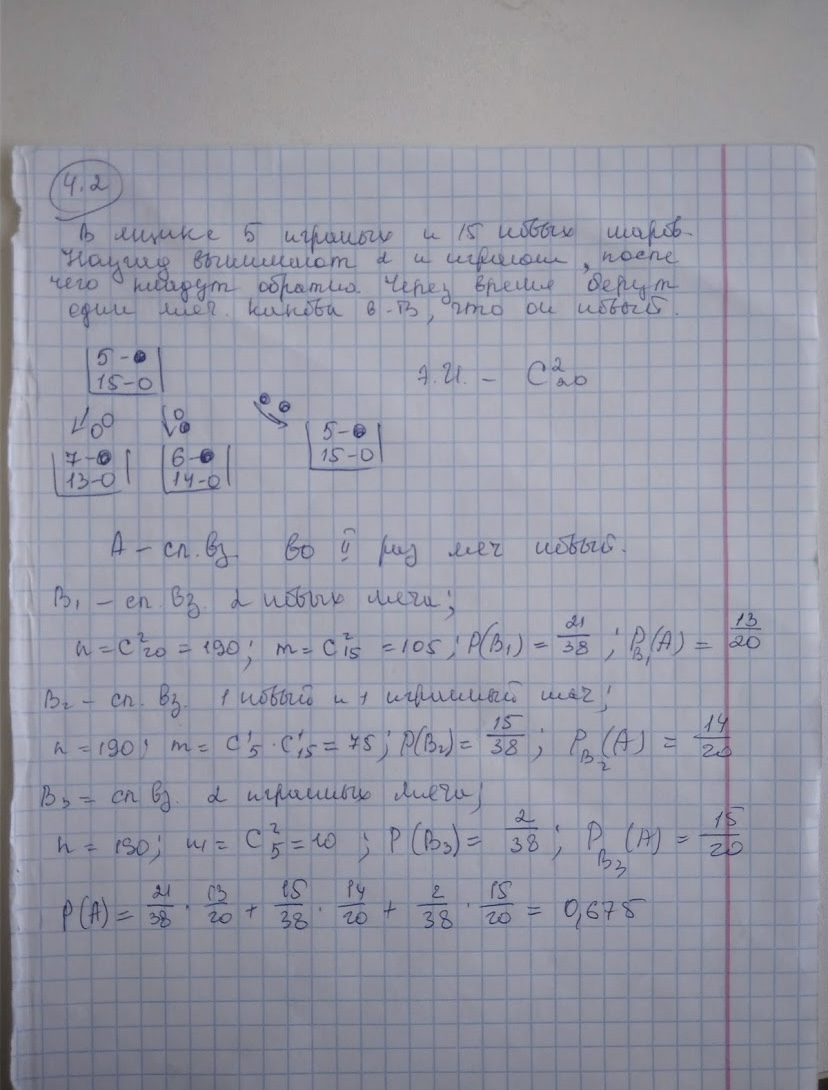 4.2
В ящике 5 играных и 15 новых шаров.
Наугад вынимают 2 и играют, после
чего кладут обратно. Через время берут
один мяч. какова в-В, что он новый.
5 - ●
15 - O
Э.И. - C²₂₀
5 - ●
15 - O
7 - ● 6 - ●
13 - O 14 - O
A - сл. вз. во II раз мяч новый.
B₁ - сл. вз. 2 новых мяча;
n = C²₂₀ = 190; m = C²₁₅ = 105; P(B₁) = 21/38; P_B₁(A) = 13/20
B₂ - сл. вз. 1 новый и 1 играный мяч;
n = 190; m = C¹₅ · C¹₁₅ = 75; P(B₂) = 15/38; P_B₂(A) = 14/20
B₃ = сл вз. 2 играных мяча;
n = 190; m = C²₅ = 10; P(B₃) = 2/38; P_B₃(A) = 15/20
P(A) = 21/38 · 13/20 + 15/38 · 14/20 + 2/38 · 15/20 = 0,675